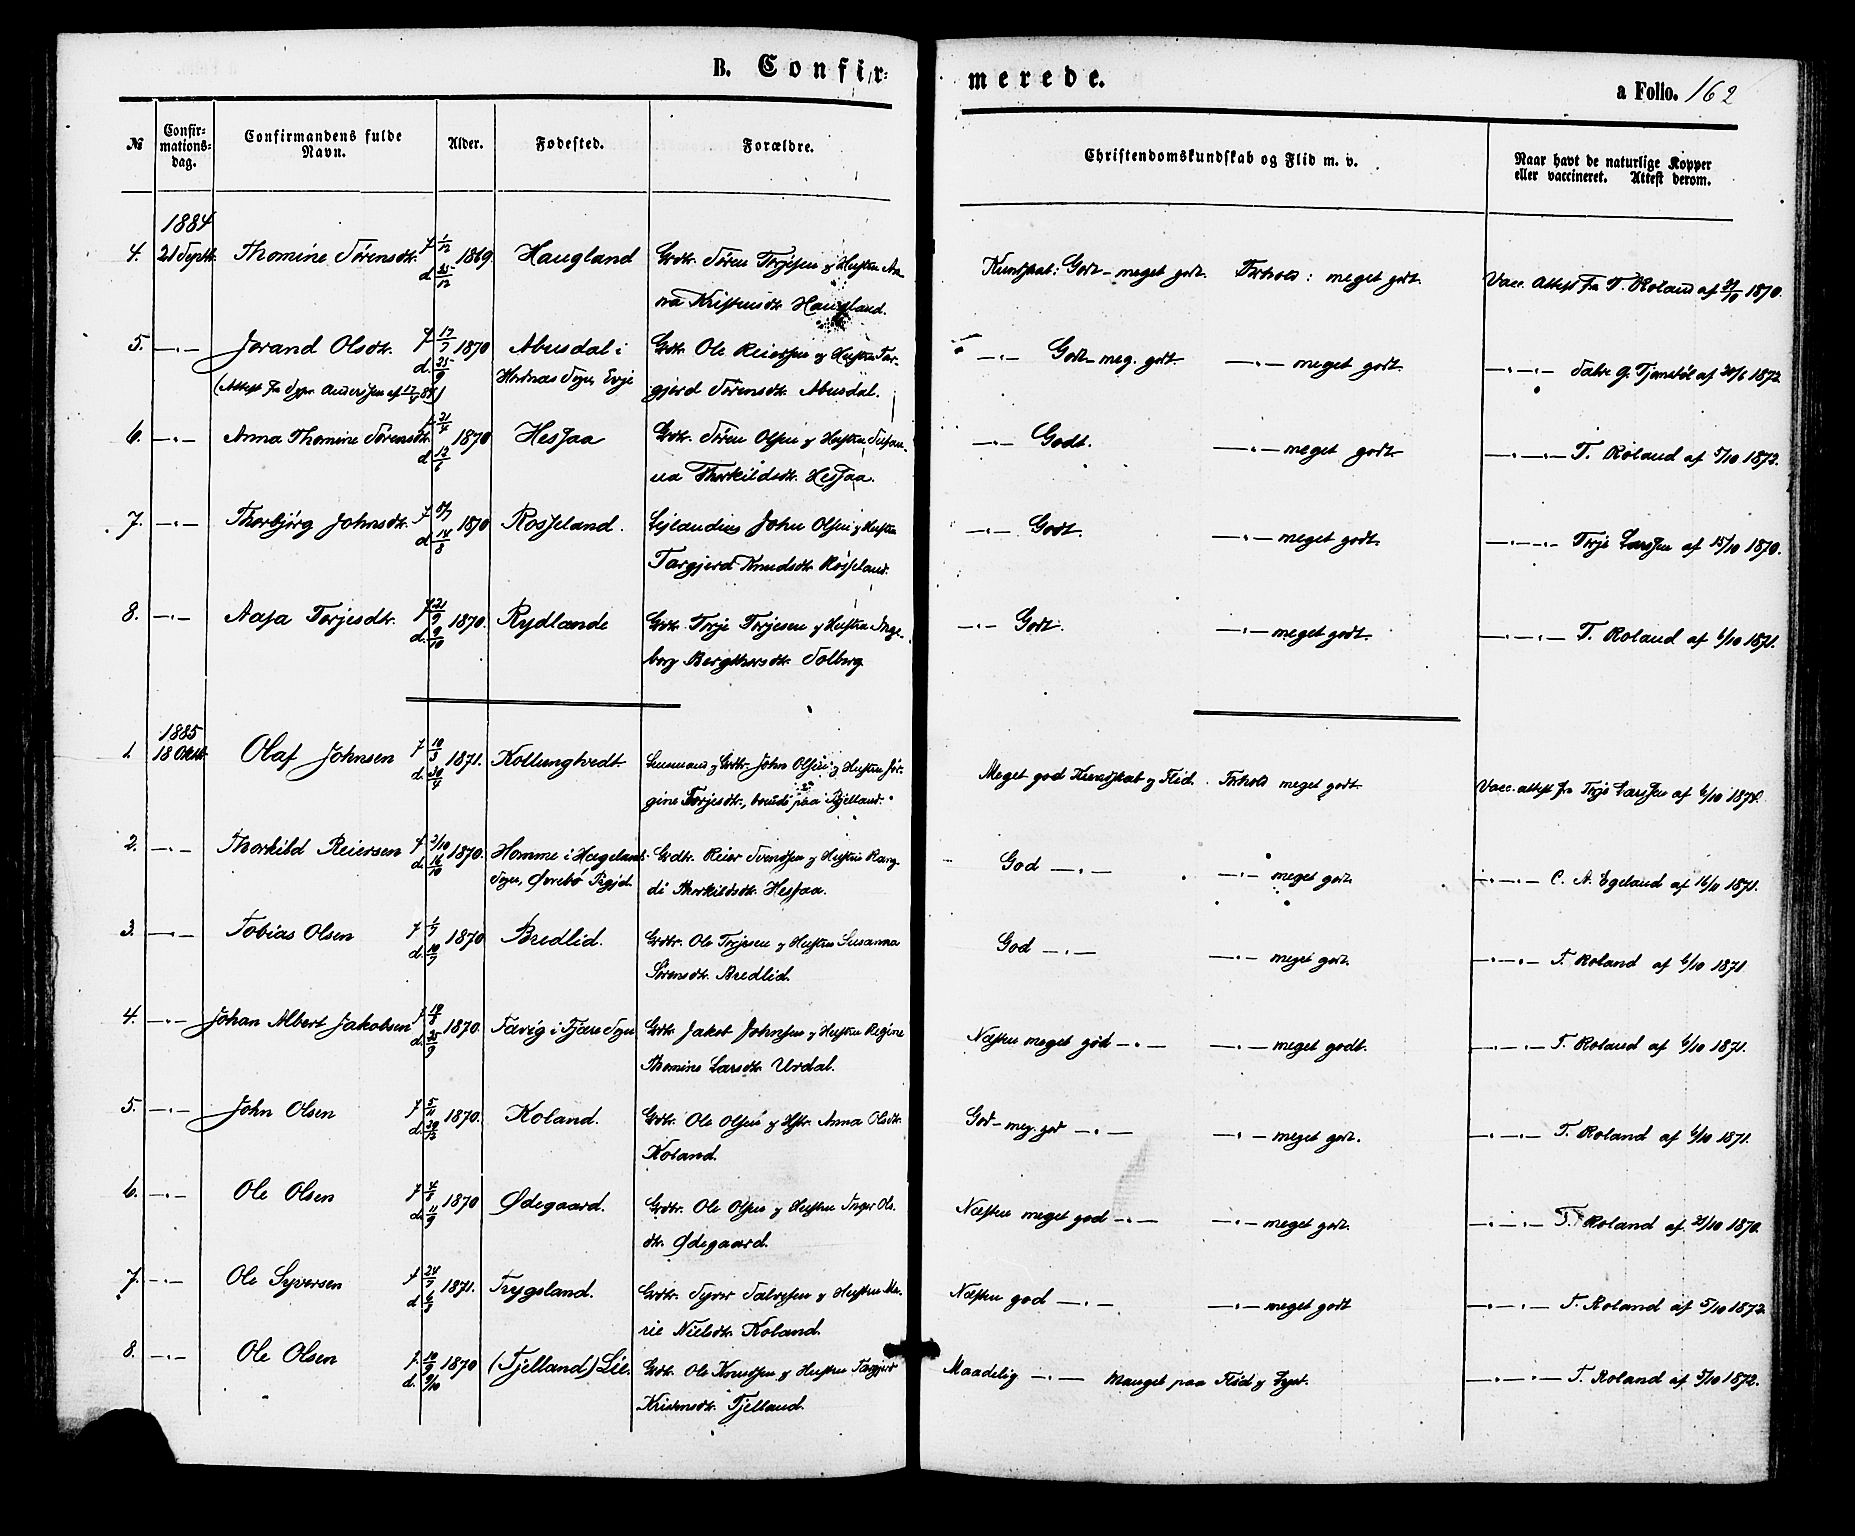 B. Confir-
merede.
a Folio. 162
№
Confir-
mations-
dag.
Confirmandens fulde
Navn.
Alder.
Fødested.
Forældre.
Christendomskundskab og Flid m. v.
Naar havt de naturlige Kopper
eller vaccineret. Attest derom.
1884
4. 21 Septb. Thomine Sørensdtr. f 1/12 1869 Haugland Grdbr. Søren Terjesen og Hustru An-
d 25/12 na Kristensdtr. Haugland.
Kundskab: Godt - meget godt. Forhold: meget godt. Vacc. attest fra T. Roland af 1870.
5. —"— Jorand Olsdtr. f 17/7 1870 Abusdal i Grdbr. Ole Reiersen og Hustru Tar-
(Attest fra Sgpr. Anderssen af ) d. 25/9 Hornnæs Sogn, Evje gjerd Sørensdtr. Abusdal.
—"— Godt - meg. godt. —"— meget godt. —"—"— Salve G. Tjomstøl af 20/6 1872
6. —"— Anna Thomine Sørensdtr. f 21/4 1870 Hesjaa Grdbr. Søren Olsen og Hustru Susan-
d 12/6 na Thorkildsdtr. Hesjaa.
—"— Godt. —"— meget godt —"—"— T. Roland af 5/10 1872.
7. —"— Thorbjørg Johnsdtr. f 8/7 1870 Rosseland. John Olsen og Hustru
d. 14/8 Targjerd Knudsdtr. Røsseland.
—"— Godt. —"— meget godt. —"—"— Terje Larssen af 15/10 1870.
8. —"— Aasa Terjesdtr. f 21/9 1870. Rydlande Grdbr. Terje Terjesen og Hustru Inge-
d. 9/10 borg Bergthorsdtr. Solberg.
—"— Godt. —"— meget godt. —"—"— T. Roland af 6/10 1871.
1885
1. 18 Oktob. Olaf Johnsen f 10/3 1871. Kollungtvedt. Lensmand og Grdbr. John Olsen og Hustru Jør-
d. 30/4 gine Terjesdtr., boende paa Fjelland.
Meget god Kundskab og Flid. Forhold meget godt. Vacc. attest fra Terje Larssen af 6/10 1871.
2. —"— Thorkild Reiersen f 2/10 1870. Homme i Hægelands Grdbr. Reier Svendsen og Hustru Rang-
d. 16/10 Sogn, Øvrebø Prgjd. di Thorkildsdtr. Hesjaa.
God —"— —"— meget godt. —"—"— C. A. Egeland af 16/11 1871.
3. —"— Tobias Olsen f 1/7 1870 Bredlid. Grdbr. Ole Terjesen og Hustru Susanna
d. 10/7 Sørensdtr. Bredlid.
God —"— —"— meget godt. —"—"— T. Roland af 6/10 1871.
4. —"— Johan Albert Jakobsen f. 19/8 1870. Tavig i Fjære Sogn Grdbr. Jakob Johnsen og Hustru Regine
d. 25/9 Thomine Larsdtr. Urdal.
Næsten meget god —"— —"— meget godt. —"—"— T. Roland af 6/10 1871.
5. —"— John Olsen f 5/11 1870. Koland. Grdbr. Ole Olsen og Hstr. Anna Olsdtr.
d. 30/12 Koland.
God - meg. god —"— —"— meget godt. —"—"— T. Roland af 6/10 1871.
6. —"— Ole Olsen f 4/8 1870 Ødegaard. Grdbr. Ole Olsen og Hustru Inger Ols-
d. 11/9 dtr. Ødegaard.
Næsten meget god —"— —"— meget godt. —"—"— T. Roland af 21/10 1870.
7. —"— Ole Syversen f 24/7 1871. Trygsland. Grdbr. Syver Salvesen og Hustru Ma-
d 6/8 rie Nielsdtr. Koland.
Næsten god —"— —"— meget godt —"—"— T. Roland af 5/10 1872.
8. —"— Ole Olsen f. 10/9 1870 (Fjelland) Lie. Grdbr. Ole Knudsen og Hustru Targjerd
d. 9/10 Kristensdtr. Fjelland.
Maadelig —"— Manget paa Flid og Lyst. —"—"— T. Roland af 5/10 1872.